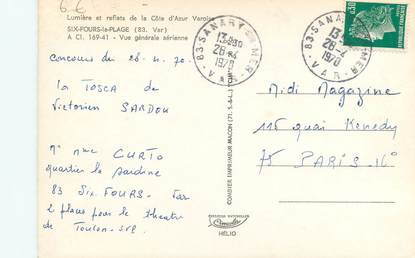 6-6
Lumière et reflets de la Côte d'Azur Varoise
SIX-FOURS-la-PLAGE (83. Var)
A Cl. 169-41 - Vue générale aérienne
83-SANARY-MER
13H30
28-4
1970
VAR
83-SANARY-MER
13H
28-4
1970
VAR
0,30
concours du 28-4-70
La TOSCA de
Victorien SARDOU
Mr Mme CURTO
quartier la sardine
83 Six. FOURS - Var
2 places pour le theatre
de Toulon - SVP
COMBIER IMPRIMEUR MACON
HÉLIO
Midi Magazine
116 quai Kenedy
75 PARIS - 16e